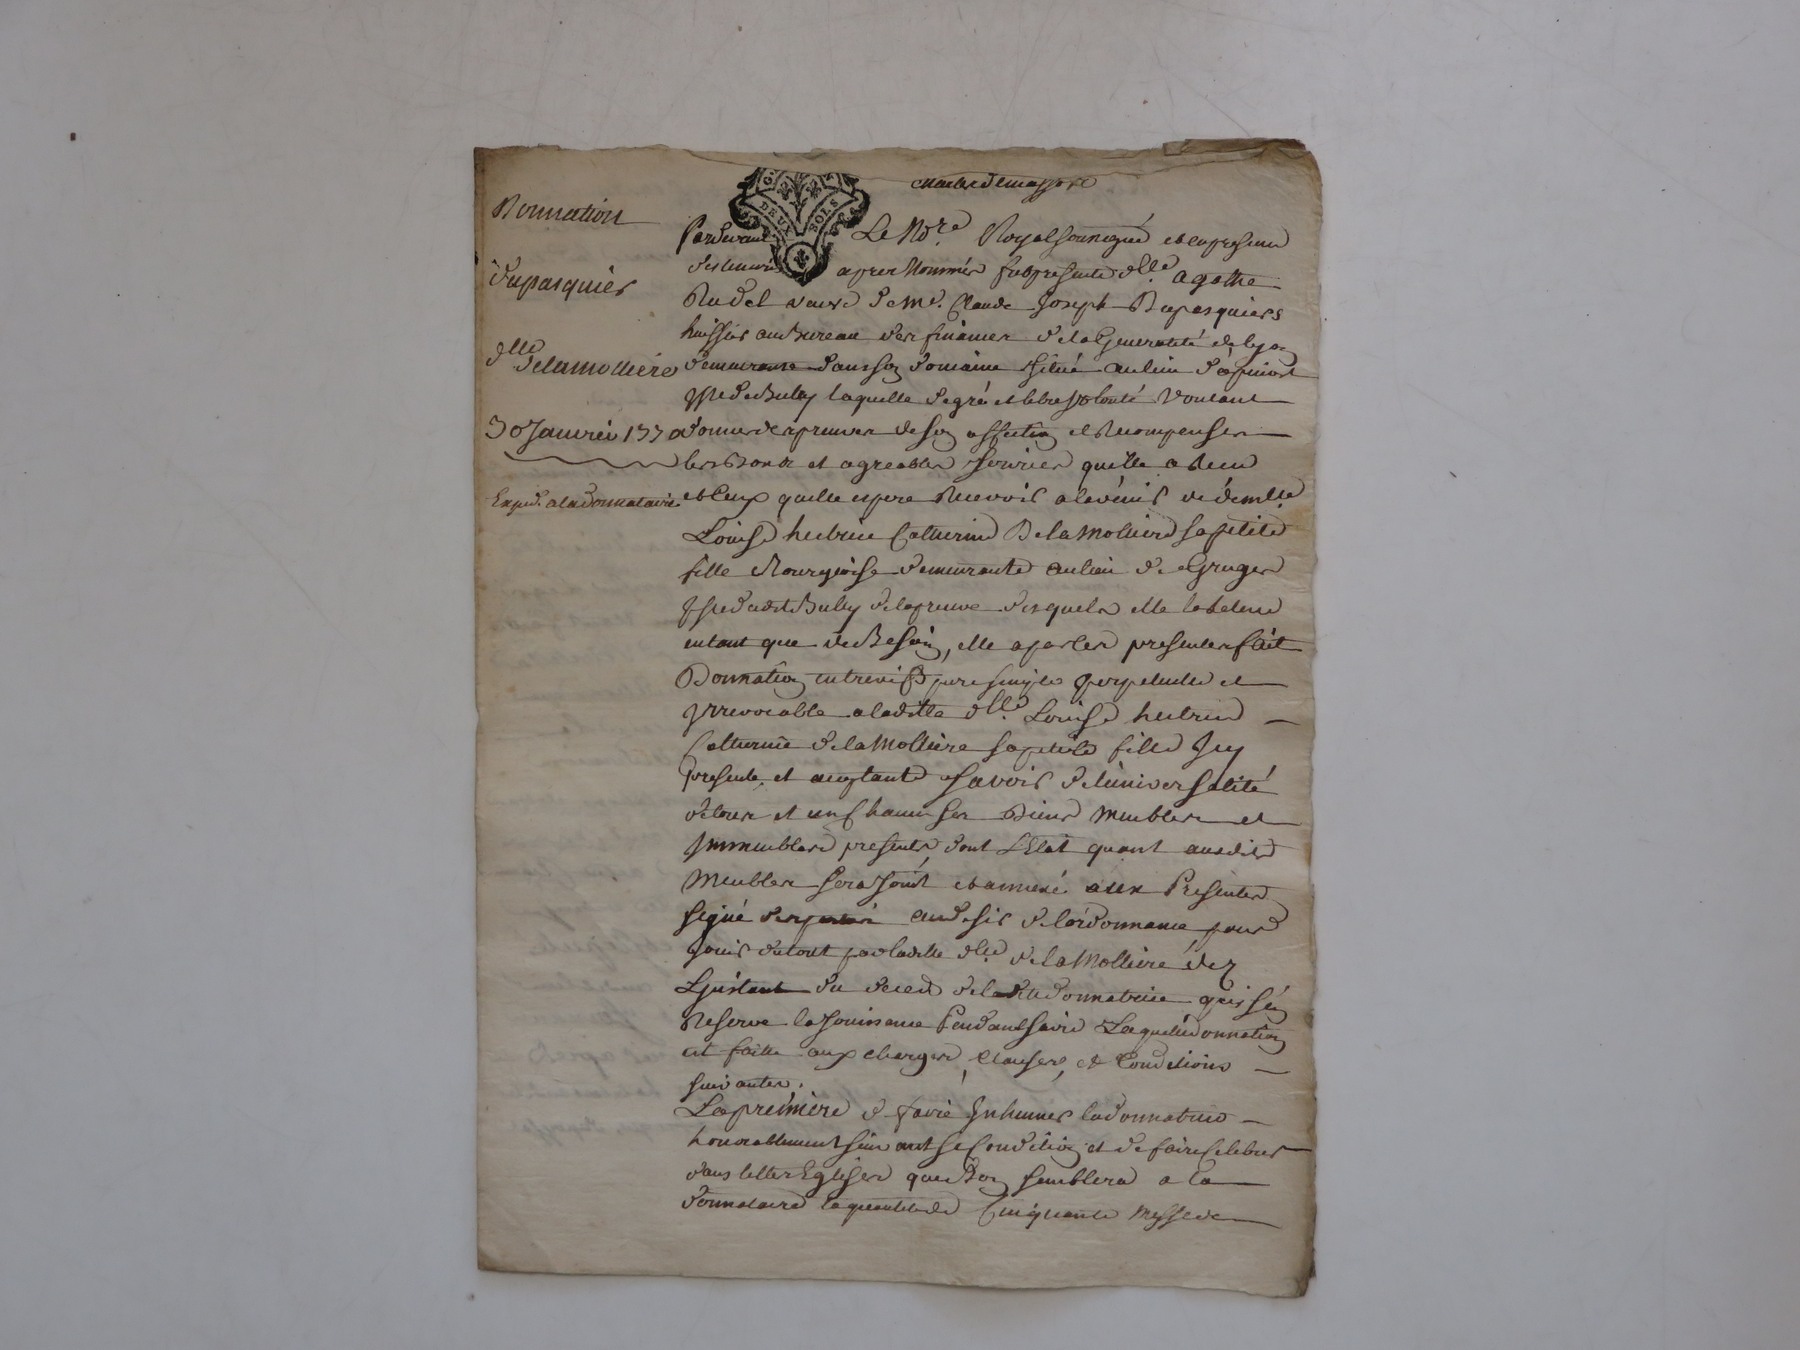 Donnation
Dupasquier
dlle Delamolliere
30 Janvier 1770
Expié. a la donnataire
DEUX SOLS
Pardevant Le Nore. Royal soussigné et en presence
des temoins apres Nommés fut presente dlle. agathe
Rudel veuve de me. Claude Joseph Dupasquiers
huissier au Bureau des finances de la Generalité de lyon
demeurante dans son domaine situé au lieu d'apinost
psse de Bully laquelle de gré et libre volonté voulant
donner des preuves de son affection et Recompenser
les Bons et agreables services qu'elle a Receu
et Ceux quelle espere Recevoir a lavenir de demlle
Louise Catherine Delamolliere sa petite
fille Bourgeoise demeurante au lieu de Gruger
psse dudit Bully de la preuve desquels elle la Releve
en tant que de Besoin, elle a par les presentes fait
Donnation entrevifs pure simple perpetuelle et
Irrevocable a laditte dlle. Louise
Catherine de la Molliere sa petite fille Icy
presente, et acceptante savoir de l'universalité
de tous et un Chacun ses Biens Meubles et
Immeubles presents, dont l'Etat quant ausdits
Meubles sera Joint et annexé aux Presentes
signé des parties au desir de l'ordonnance pour
Jouir du tout par laditte dlle. de la Molliere dez
L'Instant du deces de laditte donnatrice qui s'en
Reserve la Jouissance Pendant sa vie Laquelle donnation
est faitte aux charges, Clauses, et Conditions
suivantes.
La premiere de faire Inhumer la donnatrice
honorablement suivant sa Condition et de faire Celebrer
dans telles Eglises que Bon semblera a la
donnataire la quantité de Cinquante Messes de